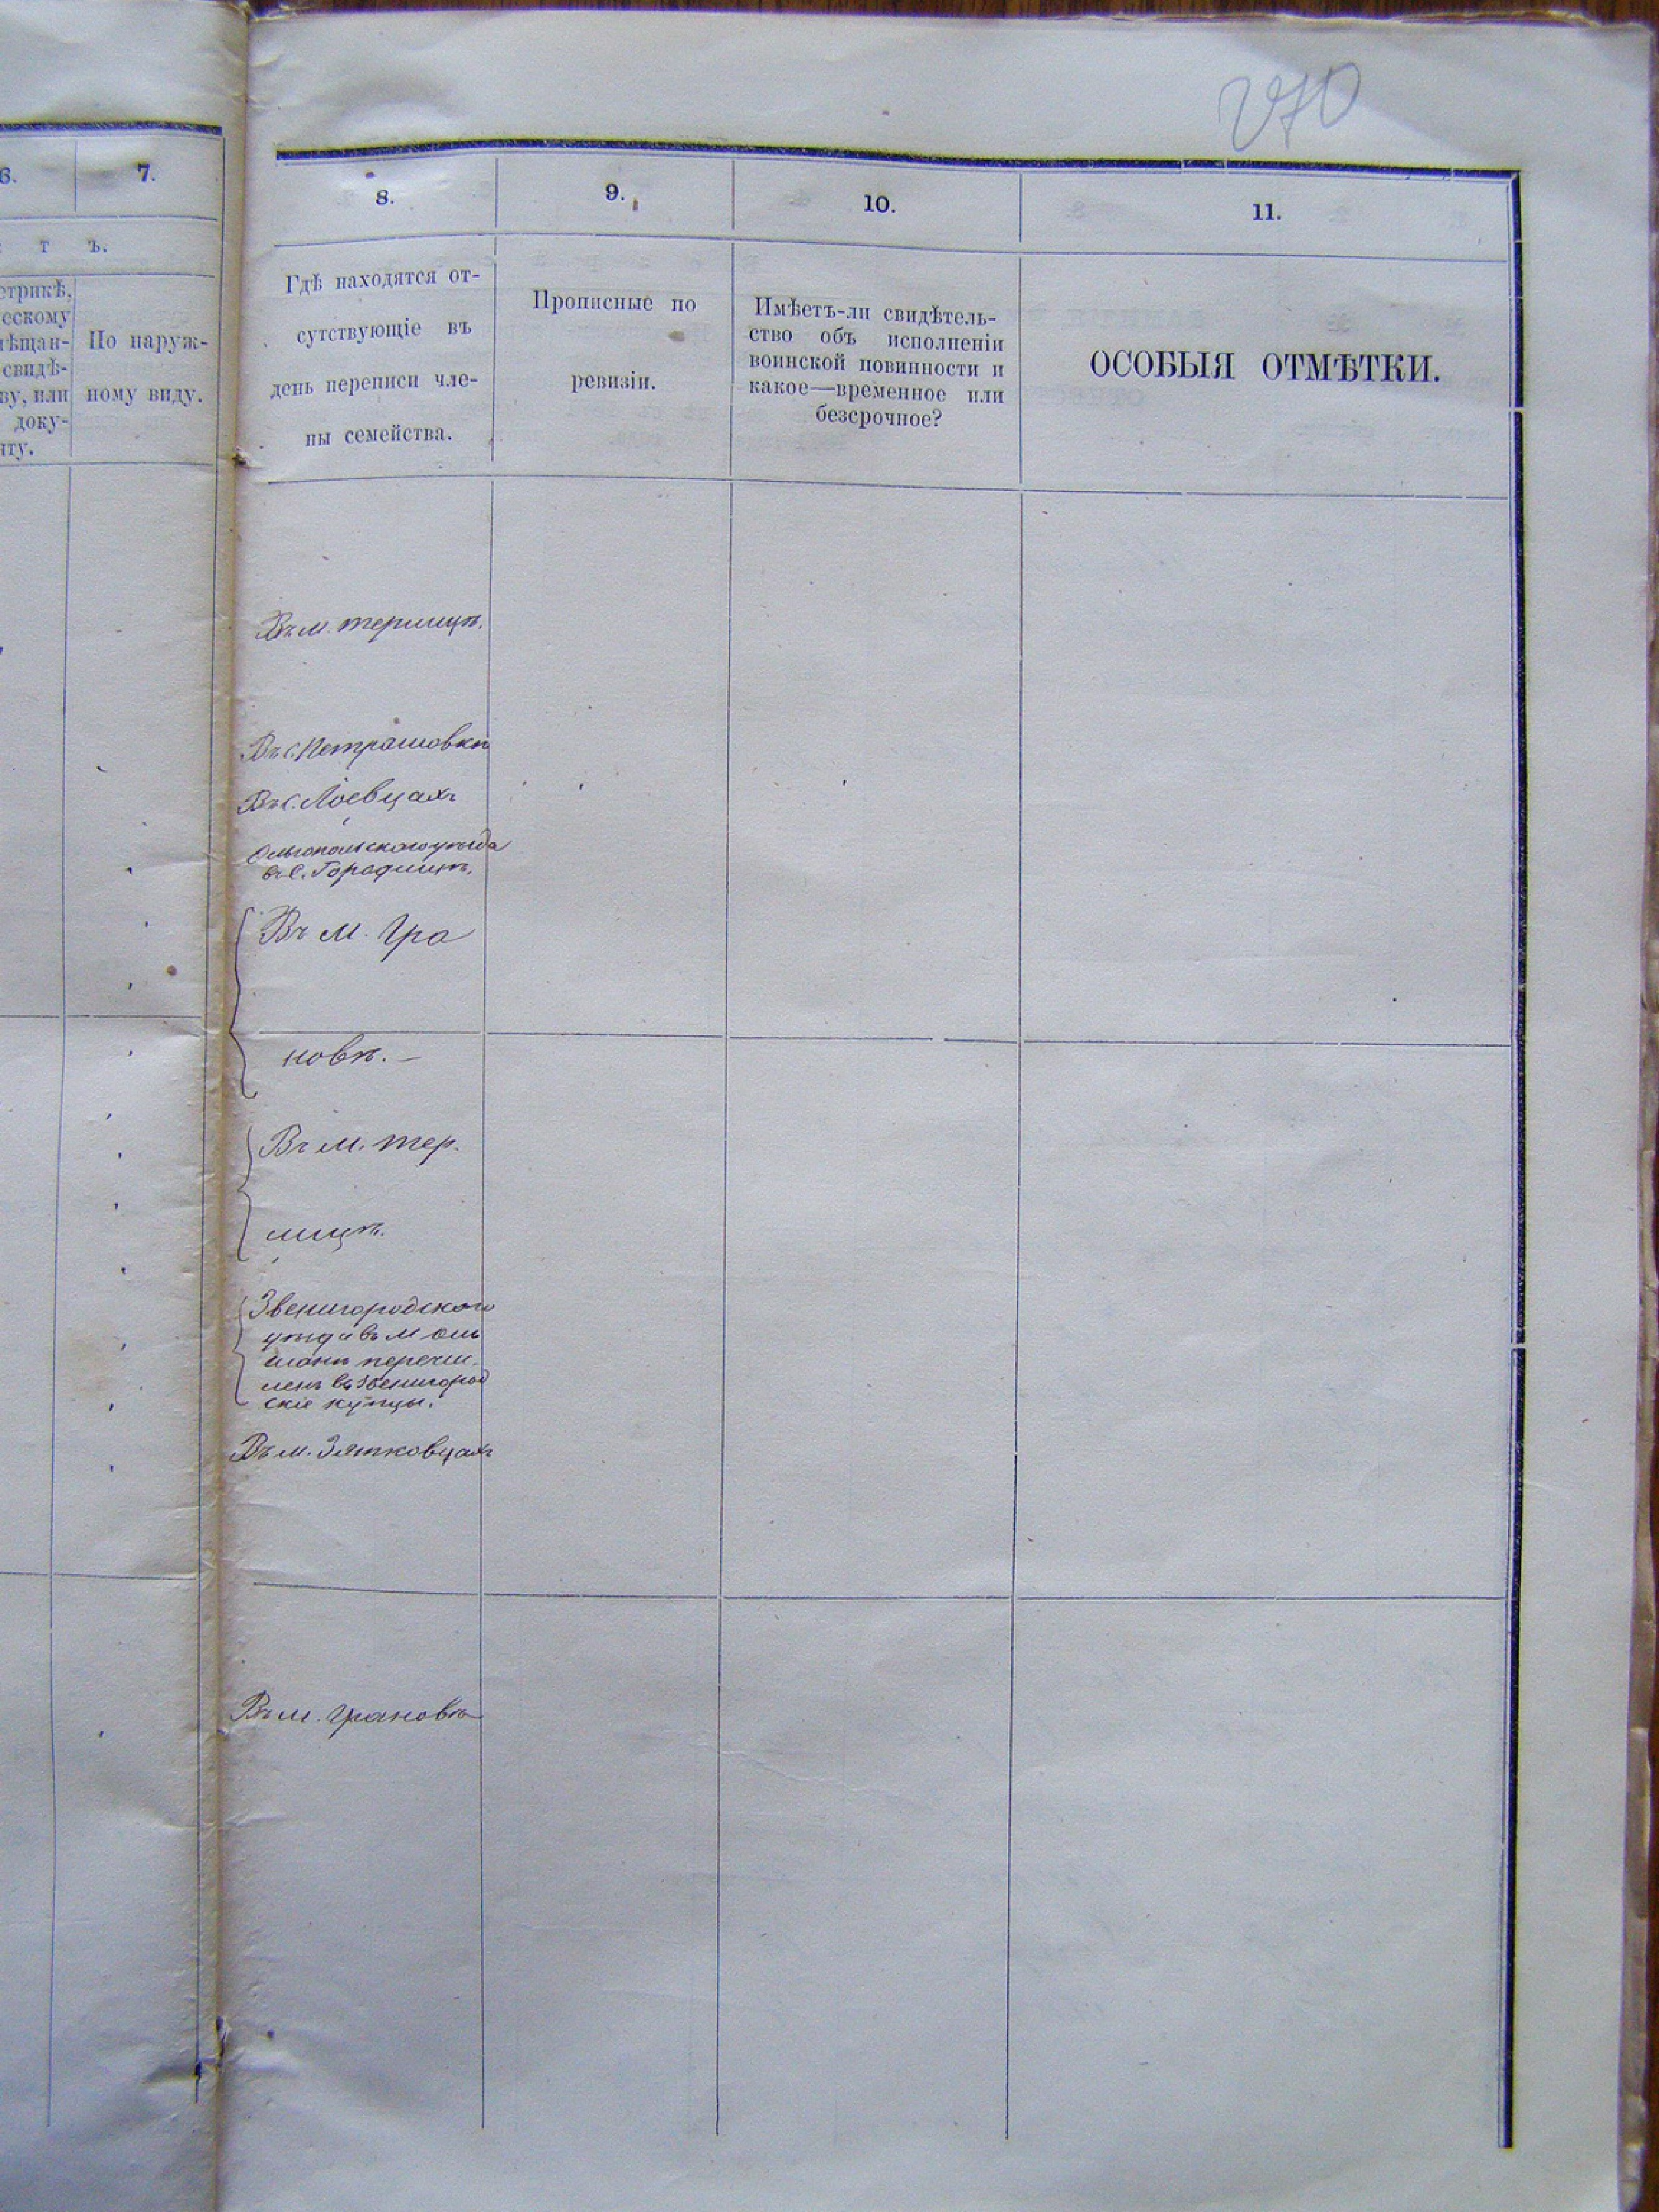 270
6.
7.
8.
9.
10.
11.
т ъ.
етрикѣ,
ескому
мѣщан-
свидѣ-
ву, или
доку-
нту.
По наруж-
ному виду.
Гдѣ находятся от-
сутствующіе въ
день переписи чле-
ны семейства.
Прописные по
ревизіи.
Имѣетъ-ли свидѣтель-
ство объ исполненіи
воинской повинности и
какое—временное или
безсрочное?
ОСОБЫЯ ОТМѢТКИ.
Въ м. терлицѣ.
Въ с. Петрашовкѣ
Въ с. Лоевцахъ
Ольгопольского уѣзда
въ с.
Въ м. Гра
новѣ. —
Въ м. тер.
лицѣ.
Звенигородского
уѣзда въ м Оль
шанѣ перечи.
ленъ въ Звенигород
скіе купцы.
Въ м. Зятковцахъ
Въ м. Грановѣ